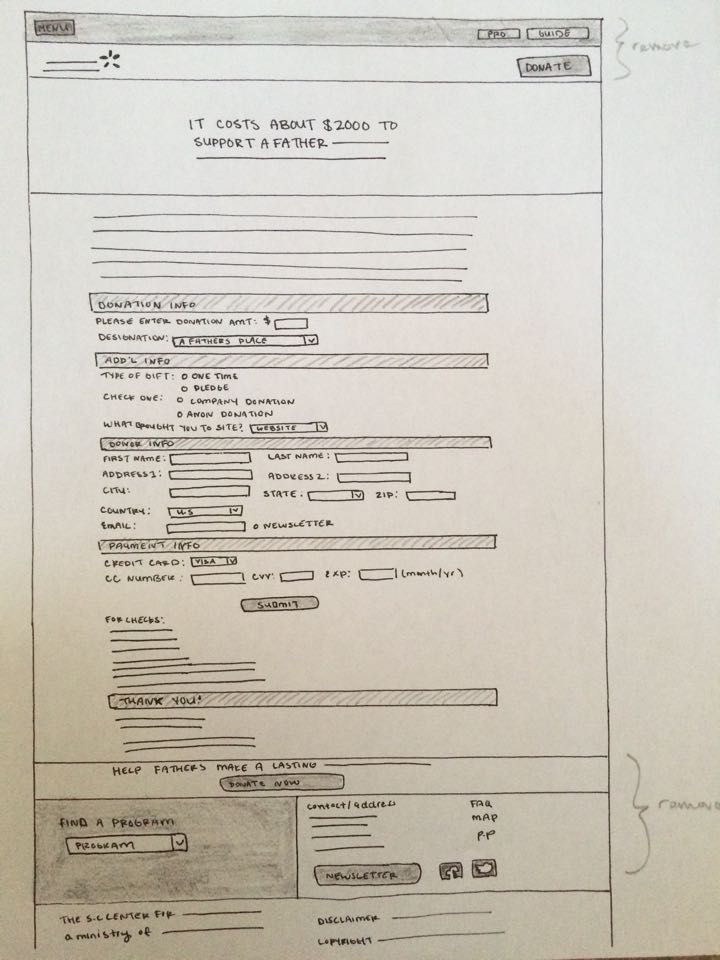 MENU PRO GUIDE
remove
DONATE
IT COSTS ABOUT $2000 TO
SUPPORT A FATHER
DONATION INFO
PLEASE ENTER DONATION AMT: $
DESIGNATION: A FATHERS PLACE
ADD'L INFO
TYPE OF GIFT: O ONE TIME
O PLEDGE
CHECK ONE: O COMPANY DONATION
O ANON DONATION
WHAT BROUGHT YOU TO SITE? WEBSITE
DONOR INFO
FIRST NAME: LAST NAME:
ADDRESS 1: ADDRESS 2:
CITY: STATE: ZIP:
COUNTRY: U.S
EMAIL: O NEWSLETTER
PAYMENT INFO
CREDIT CARD: VISA
CC NUMBER: CVV: EXP: (month/yr)
SUBMIT
FOR CHECKS:
THANK YOU!
HELP FATHERS MAKE A LASTING
DONATE NOW
remove
contact/address FAQ
FIND A PROGRAM MAP
PROGRAM PP
NEWSLETTER
THE S.C CENTER FOR DISCLAIMER
a ministry of COPYRIGHT